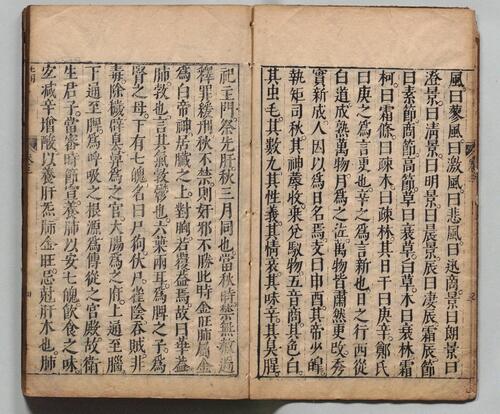 風曰風曰激風曰悲風曰商景曰朗景曰
澄景曰清景曰明景曰晨景辰曰凄辰霜辰節
曰素節商節高節草曰衰草白草木曰衰林霜
柯曰霜條曰疎木曰疎林其日干曰庚辛鄭氏
曰庚之為言更也辛之為言新也日之行西從
白道成熟萬物月為之佐萬物皆肅然更改秀
實新成人因以為日名焉支曰申酉其帝少皥
執矩司秋其神蓐收乗兌馭物五音商其色白
其虫毛其數九其性義其情哀其味辛其臭腥
祀主門祭先肝秋三月同也當秋時禁無赦過
釋罪緩刑秋不禁則奸邪不勝此時金旺肺屬金
為白帝神居臟之上對胸若覆盖焉故曰華盖
肺敦也言其氣敦鬱也六葉兩耳為脾之子為
腎之母下有七魄名曰尸狗伏尸雀陰吞賊非
毒除穢辟臭鼻為之官大腸為之府上通至腦
下通至脾為呼吸之根源為傳從之官殿故衛
生君子當審時節宣養肺以安七魄飲食之味
宐減辛增酸以養肝炁肺金旺忌尅肝木也肺